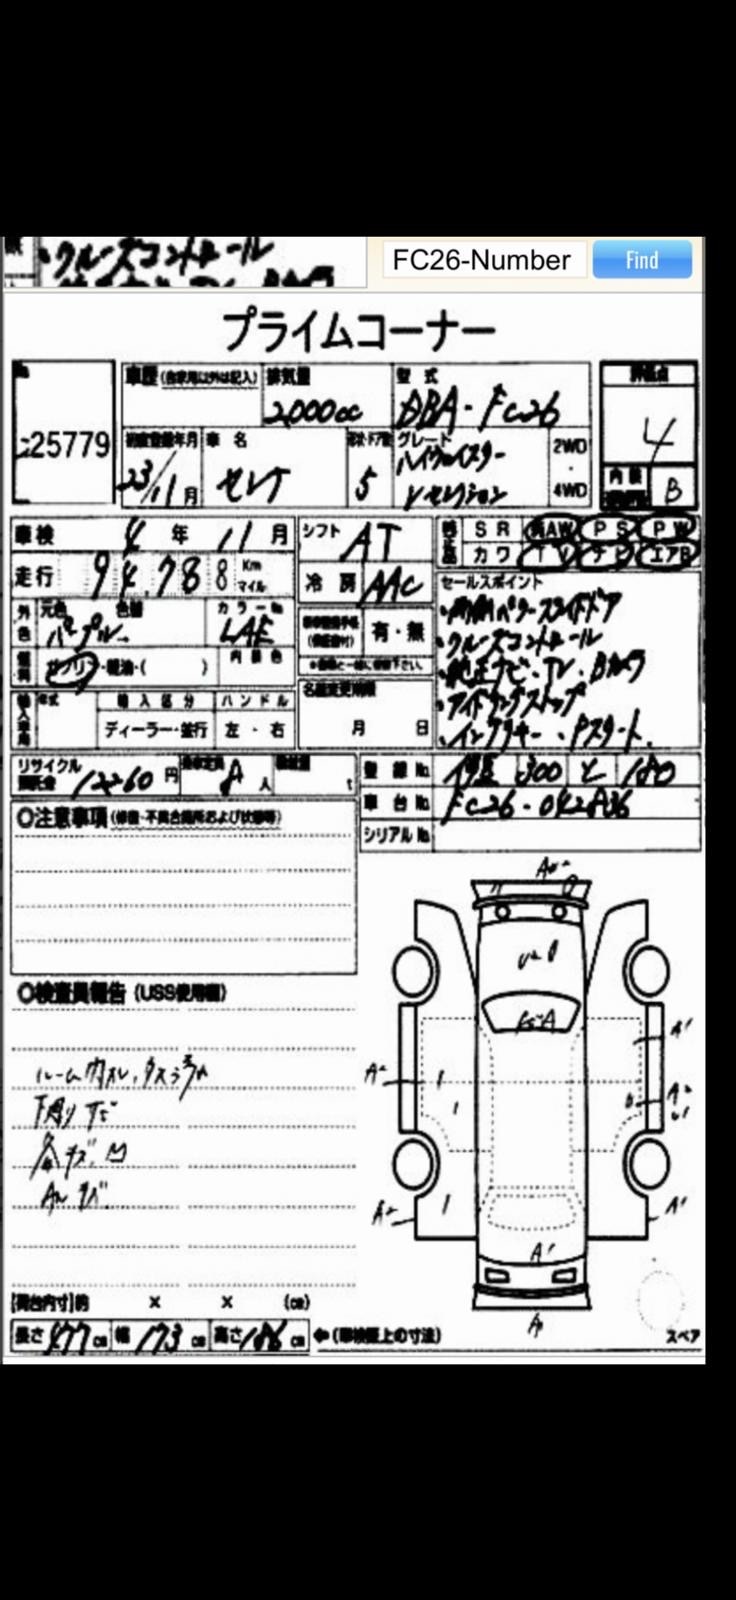 ・クルーズコントロール
FC26-Number
Find
プライムコーナー
25779
車歴 (自家用以外は記入)
排気量
2,000cc
型式
DBA-FC26
評価点
4
初度登録年月
23/11月
車名
セレナ
形状・ドア数
5
グレード
ハイウェイスター
Vセレクション
2WD
・
4WD
内装
B
車検 4年 11月
走行 94,788 Km マイル
外色
元色 色替
パープル
カラーNo
LAE
燃料
ガソリン・軽油・( )
内装色
輸入車用
年式
輸入区分
ディーラー・並行
ハンドル
左・右
シフト
AT
冷房
AAC
有・無
名義変更期限
月 日
純正品
SR AW PS PW
カワ TV ナビ エアB
セールスポイント
・両側パワースライドドア
・クルーズコントロール
・純正ナビ・TV・Bカメラ
・アイドリングストップ
・インテリキー・Pスタート
リサイクル
預託金
12260円
乗車定員
8人
積載量
t
登録No.
300 と 180
車台No.
FC26-042836
シリアルNo.
〇注意事項 (修復・不具合箇所および状態等)
〇検査員報告 (USS使用欄)
ルーム内オレ、
下廻りサビ
各キズ、凹
AWキズ
A2
A1
A2
U1
A2
A1
A1
【荷台内寸】約 × × (cm)
長さ 477cm 幅 173cm 高さ 186cm ⇐(車検証上の寸法)
スペア